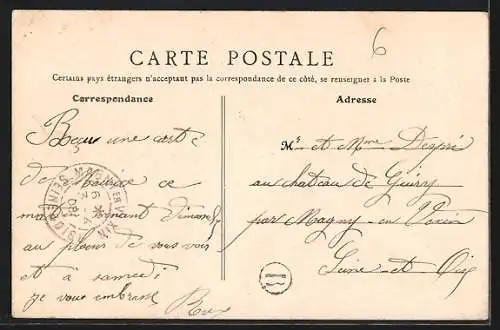 6
CARTE POSTALE
Certains pays étrangers n'acceptant pas la correspondance de ce côté, se renseigner à la Poste
Correspondance
Adresse
Reçu une carte
de Maurice ce
matin
au plaisir de vous voir
et à samedi
je vous embrasse
Mr et Mme Despré
au chateau de Guiry
par Magny-en Vexin
Seine-et Oise
MAGNY-EN-VEXIN
SEINE-ET-OISE
B